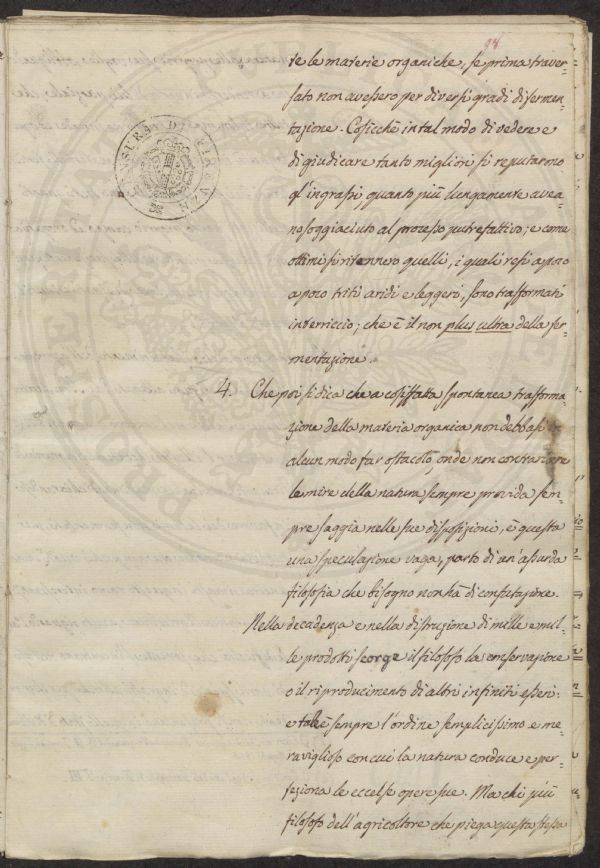 98
te le materie organiche, se prima traver-
sato non avessero per diversi gradi di fermen-
tazione. Cosicchè in tal modo di vedere e
di giudicare tanto migliori si reputarono
gl'ingrassi, quanto più lungamente avea-
no soggiaciuto al processo putrefattivo; e come
ottimi si ritennero quelli, i quali resi a poco
a poco triti aridi e leggeri, sono trasformati
in terriccio; che è il non plus ultra della fer-
mentazione.
4. Che poi si dica che a cosiffatta spontanea trasforma-
zione della materia organica non debbasi in
alcun modo far ostacolo, onde non contrariare
le mire della natura sempre provida sem-
pre saggia nelle sue disposizioni, è questa
una speculazione vaga, parto di un'assurda
filosofia che bisogno non hà di confutazione.
Nella decadenza e nella distruzione di mille e mil-
le prodotti scorge il filosofo la conservazione
o il riproducimento di altri infiniti esseri:
e tale è sempre l'ordine semplicissimo e me-
raviglioso con cui la natura conduce e per-
feziona le eccelse opere sue. Ma chi più
filosofo dell'agricoltore che piega questa stessa